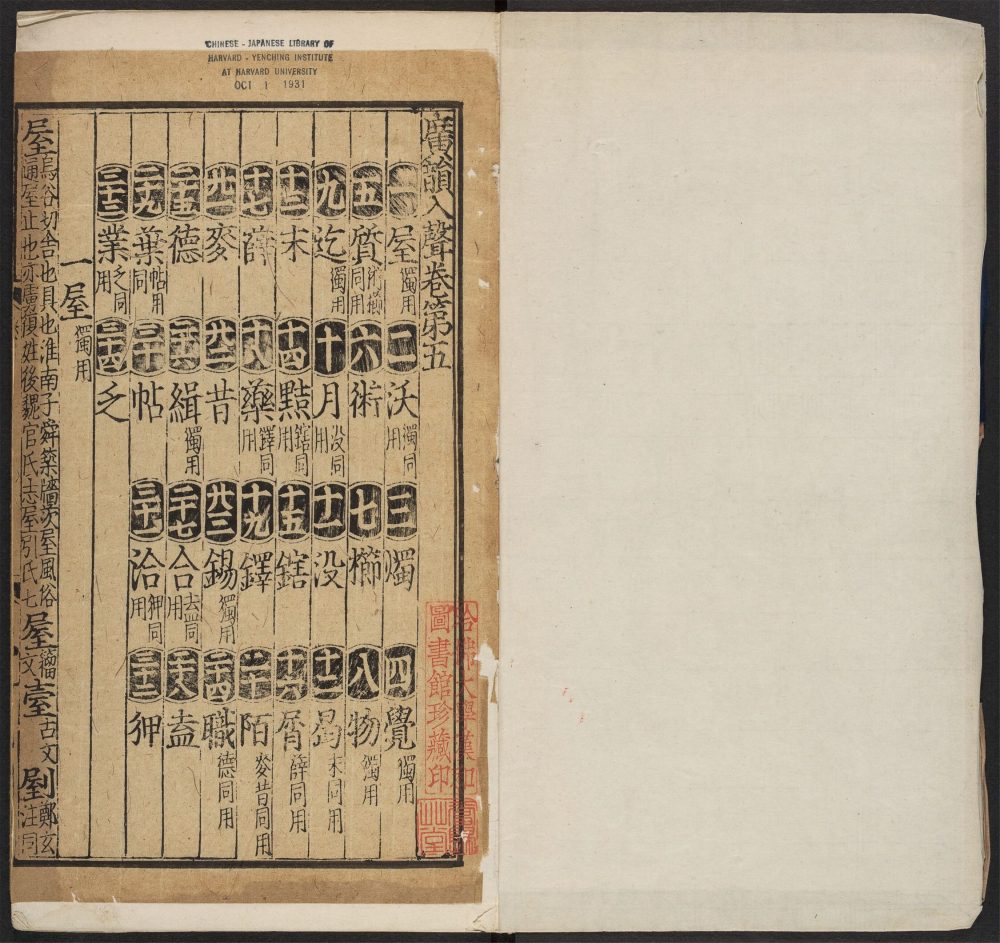 CHINESE - JAPANESE LIBRARY OF
HARVARD - YENCHING INSTITUTE
AT HARVARD UNIVERSITY
OCT 1 1931
廣韻入聲卷第五
一屋獨用 二沃獨同用 三燭 四覺獨用
五質術櫛同用 六術 七櫛 八物獨用
九迄獨用 十月没同用 十一没 十二曷末同用
十三末 十四黠鎋同用 十五鎋 十六屑薛同用
十七薛 十八藥鐸同用 十九鐸 二十陌麥昔同用
廿一麥 廿二昔 廿三錫獨用 二十四職德同用
二十五德 二十六緝獨用 二十七合盍同用 二十八盍
二十九葉帖同用 三十帖 三十一洽狎同用 三十二狎
三十三業乏同用 三十四乏
一屋獨用
屋烏谷切舍也具也淮南子舜築墻茨屋風俗
通屋止也亦虜複姓後魏官氏志屋引氏七屋籀文𡒂古文㓸鄭玄注同
哈佛大學漢和圖書館珍藏印